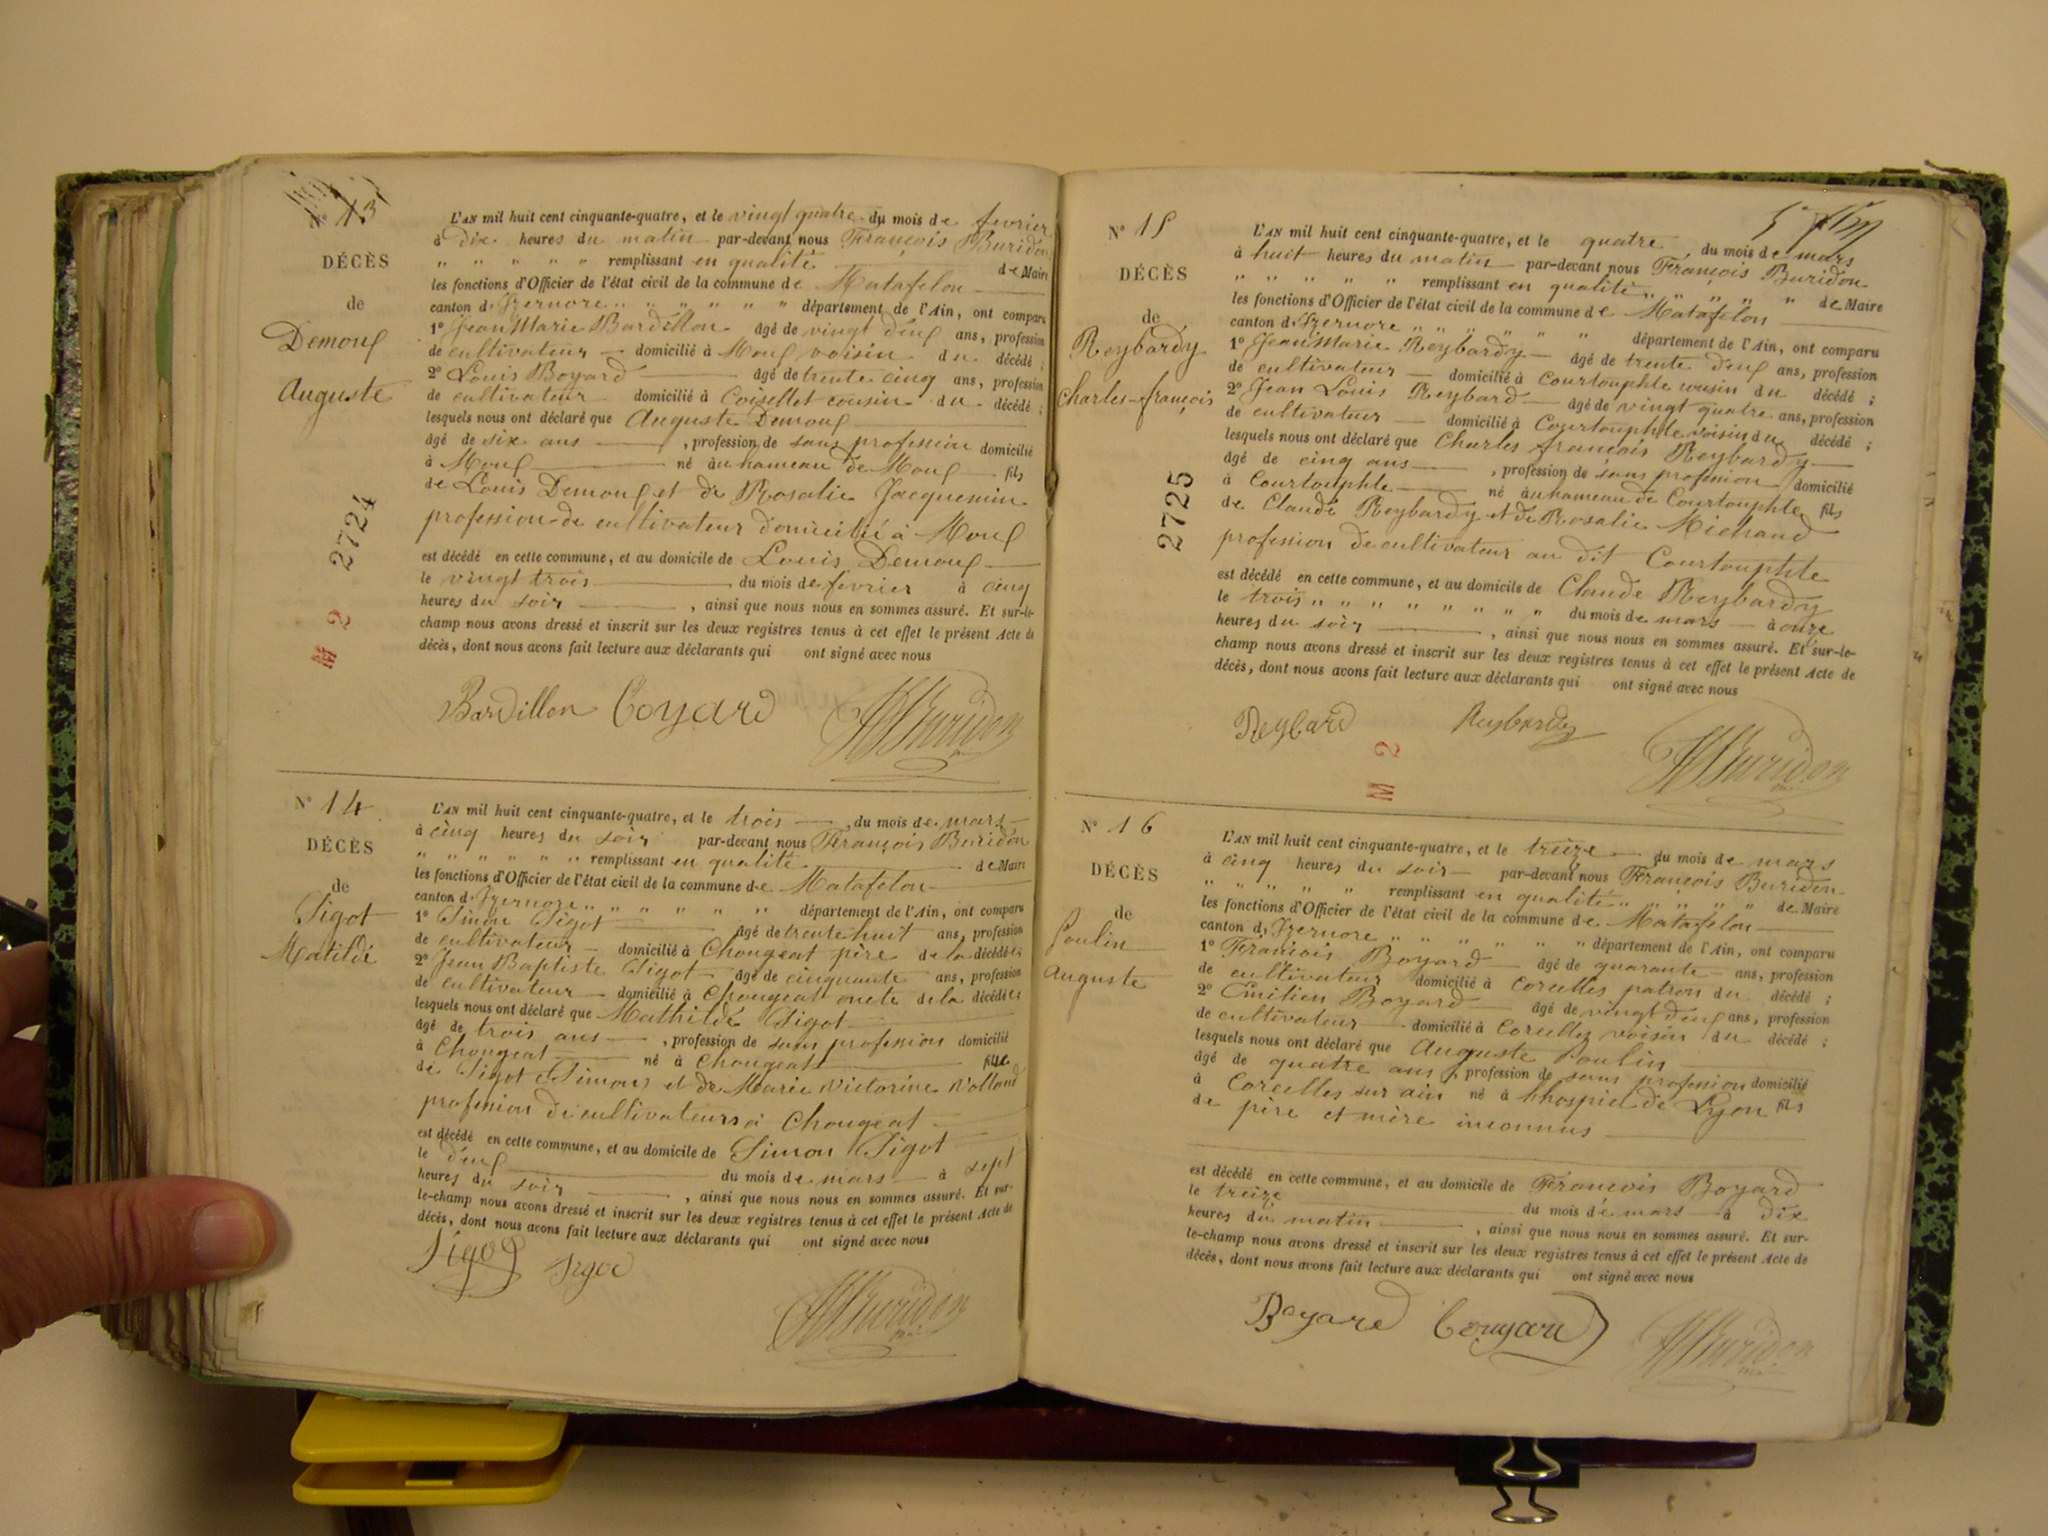 N° 13
DÉCÈS
de
Demouf
Auguste
2724
M 2
L'AN mil huit cent cinquante-quatre, et le vingt quatre du mois de fevrier
à dix heures du matin par-devant nous François Buridon
" " " " " remplissant en qualité de Maire
les fonctions d'Officier de l'état civil de la commune de Matafelon
canton d'Izernore " " " " " " département de l'Ain, ont comparu
1° Jean Marie Bardillon âgé de vingt deux ans, profession
de cultivateur domicilié à Mouf voisin du décédé ;
2° Louis Boyard âgé de trente cinq ans, profession
de cultivateur domicilié à Coiselet cousin du décédé ;
lesquels nous ont déclaré que Auguste Demouf
âgé de six ans , profession de sans profession domicilié
à Mouf né au hameau de Mouf fils
de Louis Demouf et de Rosalie Jacquemin
profession de cultivateur domicilié à Mouf
est décédé en cette commune, et au domicile de Louis Demouf
le vingt trois du mois de fevrier à cinq
heures du soir , ainsi que nous nous en sommes assuré. Et sur-le-
champ nous avons dressé et inscrit sur les deux registres tenus à cet effet le présent Acte de
décès, dont nous avons fait lecture aux déclarants qui ont signé avec nous
Bardillon Boyard Buridon
N° 14
DÉCÈS
de
Sigot
Matilde
L'AN mil huit cent cinquante-quatre, et le trois , du mois de mars
à cinq heures du soir par-devant nous François Buridon
" " " " " " remplissant en qualité de Maire
les fonctions d'Officier de l'état civil de la commune de Matafelon
canton d'Izernore " " " " " " département de l'Ain, ont comparu
1° Simon Sigot âgé de trente huit ans, profession
de cultivateur domicilié à Chougeat père de la décédée ;
2° Jean Baptiste Sigot âgé de cinquante ans, profession
de cultivateur domicilié à Chougeat oncle de la décédée ;
lesquels nous ont déclaré que Mathilde Sigot
âgé de trois ans , profession de sans profession domicilié
à Chougeat né à Chougeat fille
de Sigot Simon et de Marie Victorine Volland
profession de cultivateurs à Chougeat
est décédé en cette commune, et au domicile de Simon Sigot
le deux du mois de mars à sept
heures du soir , ainsi que nous nous en sommes assuré. Et sur-
le-champ nous avons dressé et inscrit sur les deux registres tenus à cet effet le présent Acte de
décès, dont nous avons fait lecture aux déclarants qui ont signé avec nous
Sigot Sigot Buridon
N° 15
DÉCÈS
de
Reybardy
Charles-françois
2725
M 2
L'AN mil huit cent cinquante-quatre, et le quatre du mois de mars
à huit heures du matin par-devant nous François Buridon
" " " " " remplissant en qualité " " " " " de Maire
les fonctions d'Officier de l'état civil de la commune de Matafelon
canton d'Izernore " " " " " " département de l'Ain, ont comparu
1° Jean Marie Reybardy âgé de trente deux ans, profession
de cultivateur domicilié à Courtouphle cousin du décédé ;
2° Jean Louis Reybard âgé de vingt quatre ans, profession
de cultivateur domicilié à Courtouphle voisin du décédé ;
lesquels nous ont déclaré que Charles françois Reybardy
âgé de cinq ans , profession de sans profession domicilié
à Courtouphle né au hameau de Courtouphle fils
de Claude Reybardy et de Rosalie Michaud
profession de cultivateur au dit Courtouphle
est décédé en cette commune, et au domicile de Claude Reybardy
le trois " " " " " " " " du mois de mars à onze
heures du soir , ainsi que nous nous en sommes assuré. Et sur-le-
champ nous avons dressé et inscrit sur les deux registres tenus à cet effet le présent Acte de
décès, dont nous avons fait lecture aux déclarants qui ont signé avec nous
Reybard Reybardy Buridon
N° 16
DÉCÈS
de
Poulin
Auguste
L'AN mil huit cent cinquante-quatre, et le treize du mois de mars
à cinq heures du soir par-devant nous François Buridon
" " " " " remplissant en qualité " " " " " de Maire
les fonctions d'Officier de l'état civil de la commune de Matafelon
canton d'Izernore " " " " " " département de l'Ain, ont comparu
1° François Boyard âgé de quarante ans, profession
de cultivateur domicilié à Corcelles patron du décédé ;
2° Emilien Boyard âgé de vingt deux ans, profession
de cultivateur domicilié à Corcelles voisin du décédé ;
lesquels nous ont déclaré que Auguste Poulin
âgé de quatre ans , profession de sans profession domicilié
à Corcelles sur ain né à l'hospice de Lyon fils
de père et mère inconnus
est décédé en cette commune, et au domicile de François Boyard
le treize du mois de mars à dix
heures du matin , ainsi que nous nous en sommes assuré. Et sur-
le-champ nous avons dressé et inscrit sur les deux registres tenus à cet effet le présent Acte de
décès, dont nous avons fait lecture aux déclarants qui ont signé avec nous
Boyard Boyard Buridon